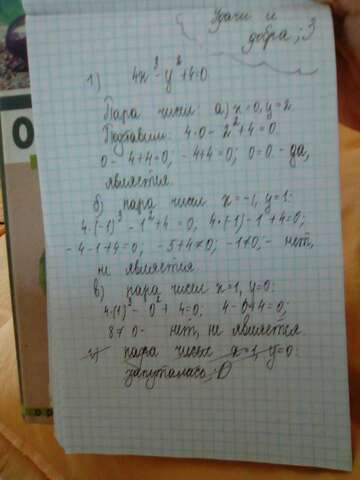 Удачи и
добра ;3
1) 4x³-y²+4=0
Пара чисел: а) x=0, y=2
Подставим: 4·0-2²+4=0.
0-4+4=0; -4+4=0; 0=0 - да,
является.
б) пара чисел x=-1, y=1:
4·(-1)³-1²+4=0, 4·(-1)-1+4=0;
-4-1+4=0; -5+4≠0; -1≠0; - нет,
не является
в) пара чисел x=1, y=0:
4·(1)³-0²+4=0; 4-0+4=0;
8≠0 - нет, не является
г) пара чисел x=1, y=0:
запуталась :D
О